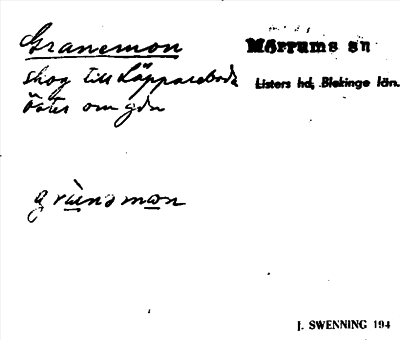 Granemon
Mörrums sn
skog till Läppareboda
Listers hd, Blekinge län.
öster om gdn
grànsmon
J. SWENNING 194